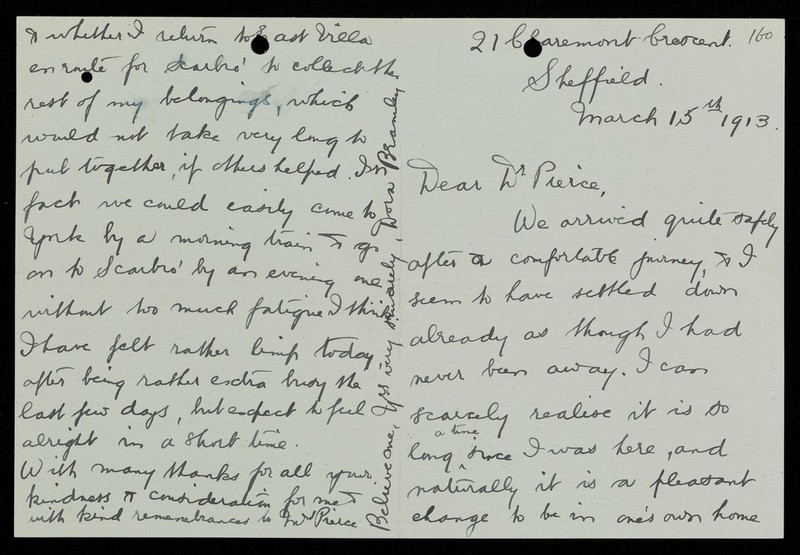 160
21 Claremont Crescent.
Sheffield.
March 15th 1913.
Dear Dr Pierce,
We arrived quite safely
after a comfortable journey, & I
seem to have settled down
already as though I had
never been away. I can
scarcely realise it is so
long a time since I was here, and
naturally it is a pleasant
change to be in one's own home
& whether I return to East Villa
en route for Scarbro' to collect the
rest of my belongings, which
would not take very long to
put together, if others helped. In
fact we could easily come to
York by a morning train & go
on to Scarbro' by an evening one
without too much fatigue I think
I have felt rather limp today,
after being rather extra busy the
last few days, but expect to feel
alright in a short time.
With many thanks for all your
kindness & consideration for me &
with kind remembrances to Mrs Pierce
Believe me, Yrs very sincerely, Dora Bramley